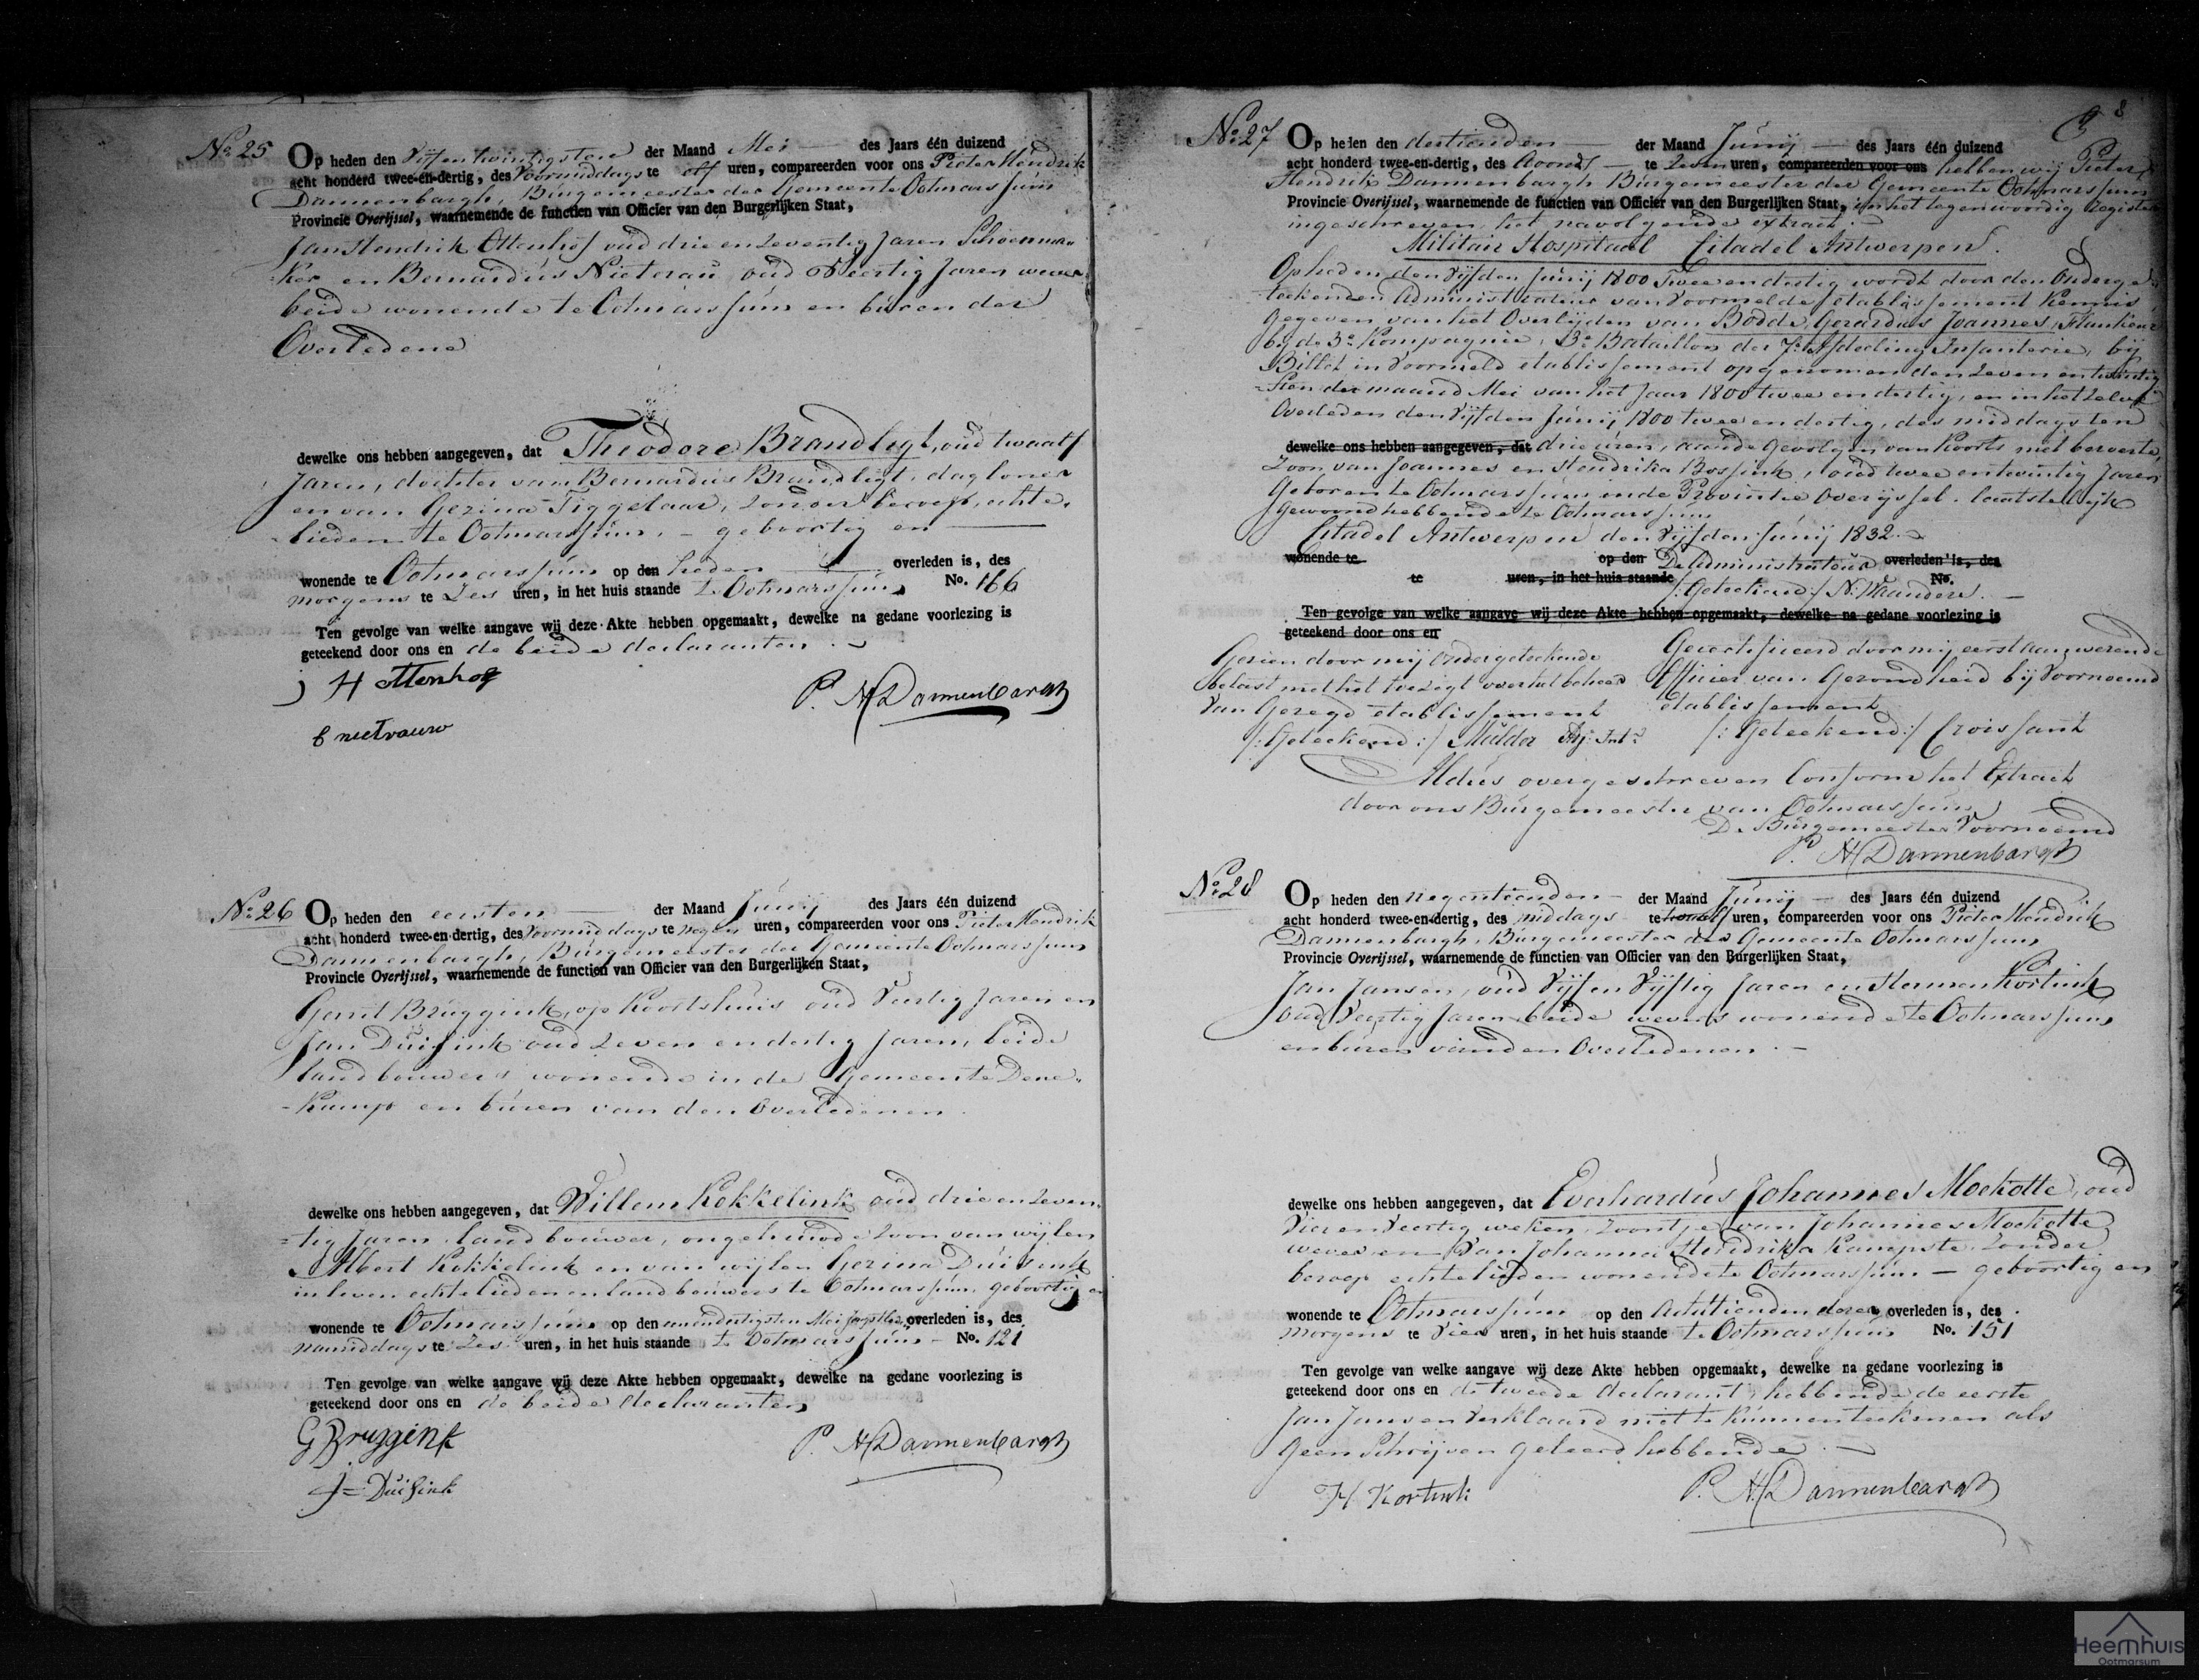 No. 25
Op heden den Vijfentwintigsten der Maand Mei des Jaars één duizend
acht honderd twee-en-dertig, des Voormiddags te elf uren, compareerden voor ons Pieter Hendrik
Dannenbargh, Burgemeester der Gemeente Ootmarssum
Provincie Overijssel, waarnemende de functien van Officier van den Burgerlijken Staat,
Jan Hendrik Ottenhof oud drie en Zeventig Jaren Schoenma-
ker en Bernardus Nieterau oud Veertig Jaren wever
beide wonende te Ootmarssum en buren der
Overledene
dewelke ons hebben aangegeven, dat Theodore Brandligt, oud twaalf
Jaren, dochter van Bernardus Brandligt, dagloner
en van Gezina Tiggelaar, zonder beroep, echte-
lieden te Ootmarssum, - geboortig en
wonende te Ootmarssum op den heden overleden is, des
morgens te Zes uren, in het huis staande te Ootmarssum No. 166
Ten gevolge van welke aangave wij deze Akte hebben opgemaakt, dewelke na gedane voorlezing is
geteekend door ons en de beide declaranten.
J H ttenhof
P. H Dannenbargh
B nietrauw
No. 26
Op heden den eersten der Maand Junij des Jaars één duizend
acht honderd twee-en-dertig, des Voormiddags te negen uren, compareerden voor ons Pieter Hendrik
Dannenbargh, Burgemeester der Gemeente Ootmarssum
Provincie Overijssel, waarnemende de functien van Officier van den Burgerlijken Staat,
Gerrit Bruggink, op Koortshuis oud Veertig Jaren en
Jan Duisink oud Zeven en dertig Jaren, beide
landbouwers wonende in de Gemeente Dene-
kamp en buren van den Overledenen.
dewelke ons hebben aangegeven, dat Willem Kokkelink oud drie en Zeven-
tig Jaren landbouwer, ongehuwde Zoon van wijlen
Albert Kokkelink en van wijlen Gezina Duisink
in leven echtelieden en landbouwers te Ootmarssum, geboortig en
wonende te Ootmarssum op den eenendertigsten Mei overleden is, des
namiddags te Zes uren, in het huis staande te Ootmarssum No. 121
Ten gevolge van welke aangave wij deze Akte hebben opgemaakt, dewelke na gedane voorlezing is
geteekend door ons en de beide declaranten
G Bruggink
P. H Dannenbargh
J = Duisink
8
No. 27
Op heden den dertienden der Maand Junij des Jaars één duizend
acht honderd twee-en-dertig, des Avonds te Zeven uren, compareerden voor ons hebben wij Pieter
Hendrik Dannenbargh Burgemeester der Gemeente Ootmarssum
Provincie Overijssel, waarnemende de functien van Officier van den Burgerlijken Staat, in het tegenwoordig Register
ingeschreven het navolgende extract.
Militair Hospitaal Citadel Antwerpen.
Op heden den Vijfden Junij 1800 Twee en dertig wordt door den Onderge-
teekenden Administrateur van Voormelde etablissement kennis
gegeven van het Overlijden van Bodde, Gerardus Joannes, Flankeur
bij de 3e Kompagnie, 3e Bataillon der 7e Afdeeling Infanterie, bij
Billet in Voormeld etablissement opgenomen den Zeven en twintig-
sten der maand Mei van het Jaar 1800 twee en dertig, en in hetzelve
Overleden den Vijfden Junij 1800 twee en dertig, des middags ten
dewelke ons hebben aangegeven, dat drie uren, aan de Gevolgen van Koorts met beroerte,
Zoon van Joannes en Hendrika Bossink, oud twee en twintig Jaren
Geboren te Ootmarssum in de Provintie Overijssel. laatstelijk
Gewoond hebbende te Ootmarssum
Citadel Antwerpen den Vijfden Junij 1832.
wonende te op den De Administrateur overleden is, des
te uren, in het huis staande /:Geteekend:/ N: Waanders. No.
Ten gevolge van welke aangave wij deze Akte hebben opgemaakt, dewelke na gedane voorlezing is
geteekend door ons en
Gezien door mij ondergeteekende
belast met het toezigt over het beheer
van Gezegd etablissement
/:Geteekend:/ Mulder Adj: Int:
Gecertificeerd door mij eerstaanwezende
Officier van Gezondheid bij Voornoemd
etablissement
/:Geteekend:/ Croissant
Aldus overgeschreven Conform het Extract
door ons Burgemeester van Ootmarssum
De Burgemeester Voornoemd
P. H Dannenbargh
No. 28
Op heden den negentienden der Maand Junij des Jaars één duizend
acht honderd twee-en-dertig, des middags te twaalf uren, compareerden voor ons Pieter Hendrik
Dannenbargh, Burgemeester der Gemeente Ootmarssum
Provincie Overijssel, waarnemende de functien van Officier van den Burgerlijken Staat,
Jan Jansen, oud Vijf en Vijftig Jaren en Hermen Kortink
oud Veertig Jaren beide wevers wonende te Ootmarssum
en buren van den Overledenen.
dewelke ons hebben aangegeven, dat Everhardus Johannes Moekotte, oud
Vier en Veertig weken, Zoontje van Johannes Moekotte
wever en van Johanna Hendrika Kampste, Zonder
beroep echtelieden wonende te Ootmarssum - geboortig en
wonende te Ootmarssum op den Achttienden dezer overleden is, des
morgens te Vier uren, in het huis staande te Ootmarssum No. 151
Ten gevolge van welke aangave wij deze Akte hebben opgemaakt, dewelke na gedane voorlezing is
geteekend door ons en de tweede declarant, hebbende de eerste
Jan Jansen Verklaard niet te kunnen teekenen als
geen Schrijven geleerd hebbende.
H Kortink
P. H. Dannenbargh
Heemhuis
Ootmarsum